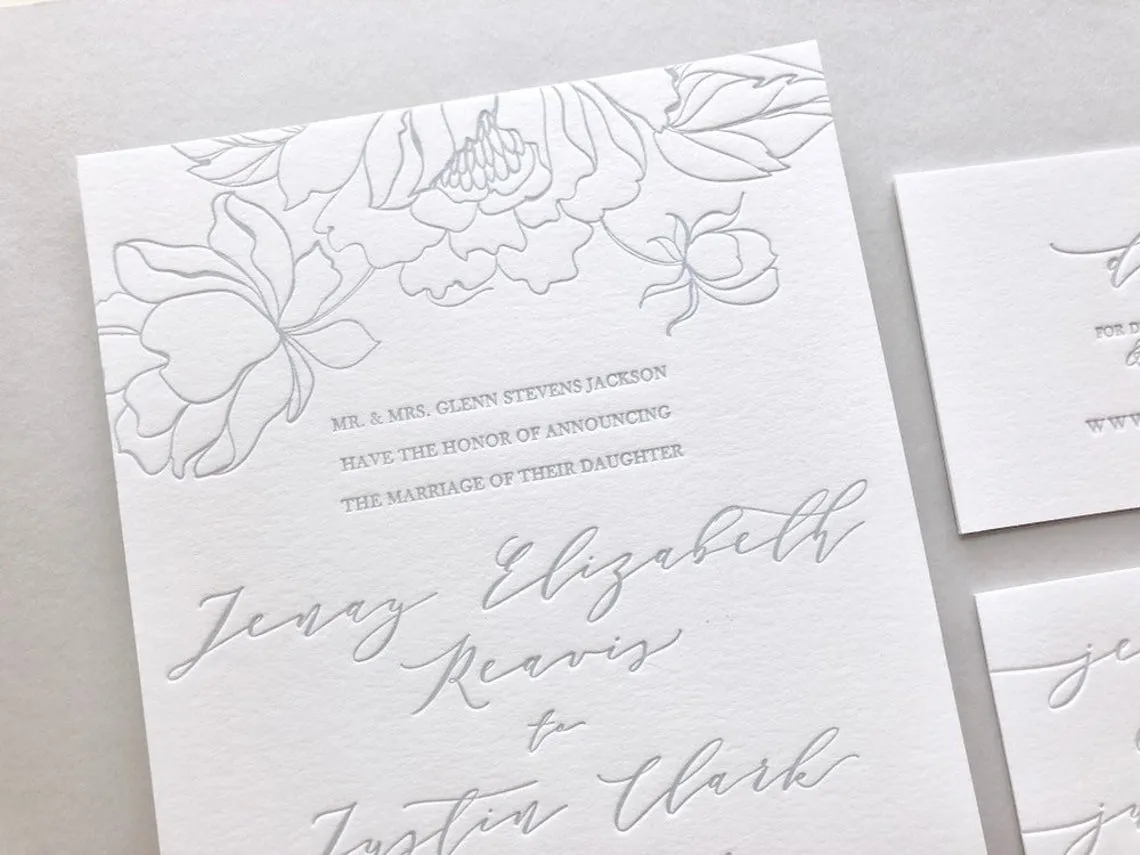 MR. & MRS. GLENN STEVENS JACKSON
HAVE THE HONOR OF ANNOUNCING
THE MARRIAGE OF THEIR DAUGHTER
Jenay Elizabeth
Reavis
to
Justin Clark
FOR
WWW
je
ju